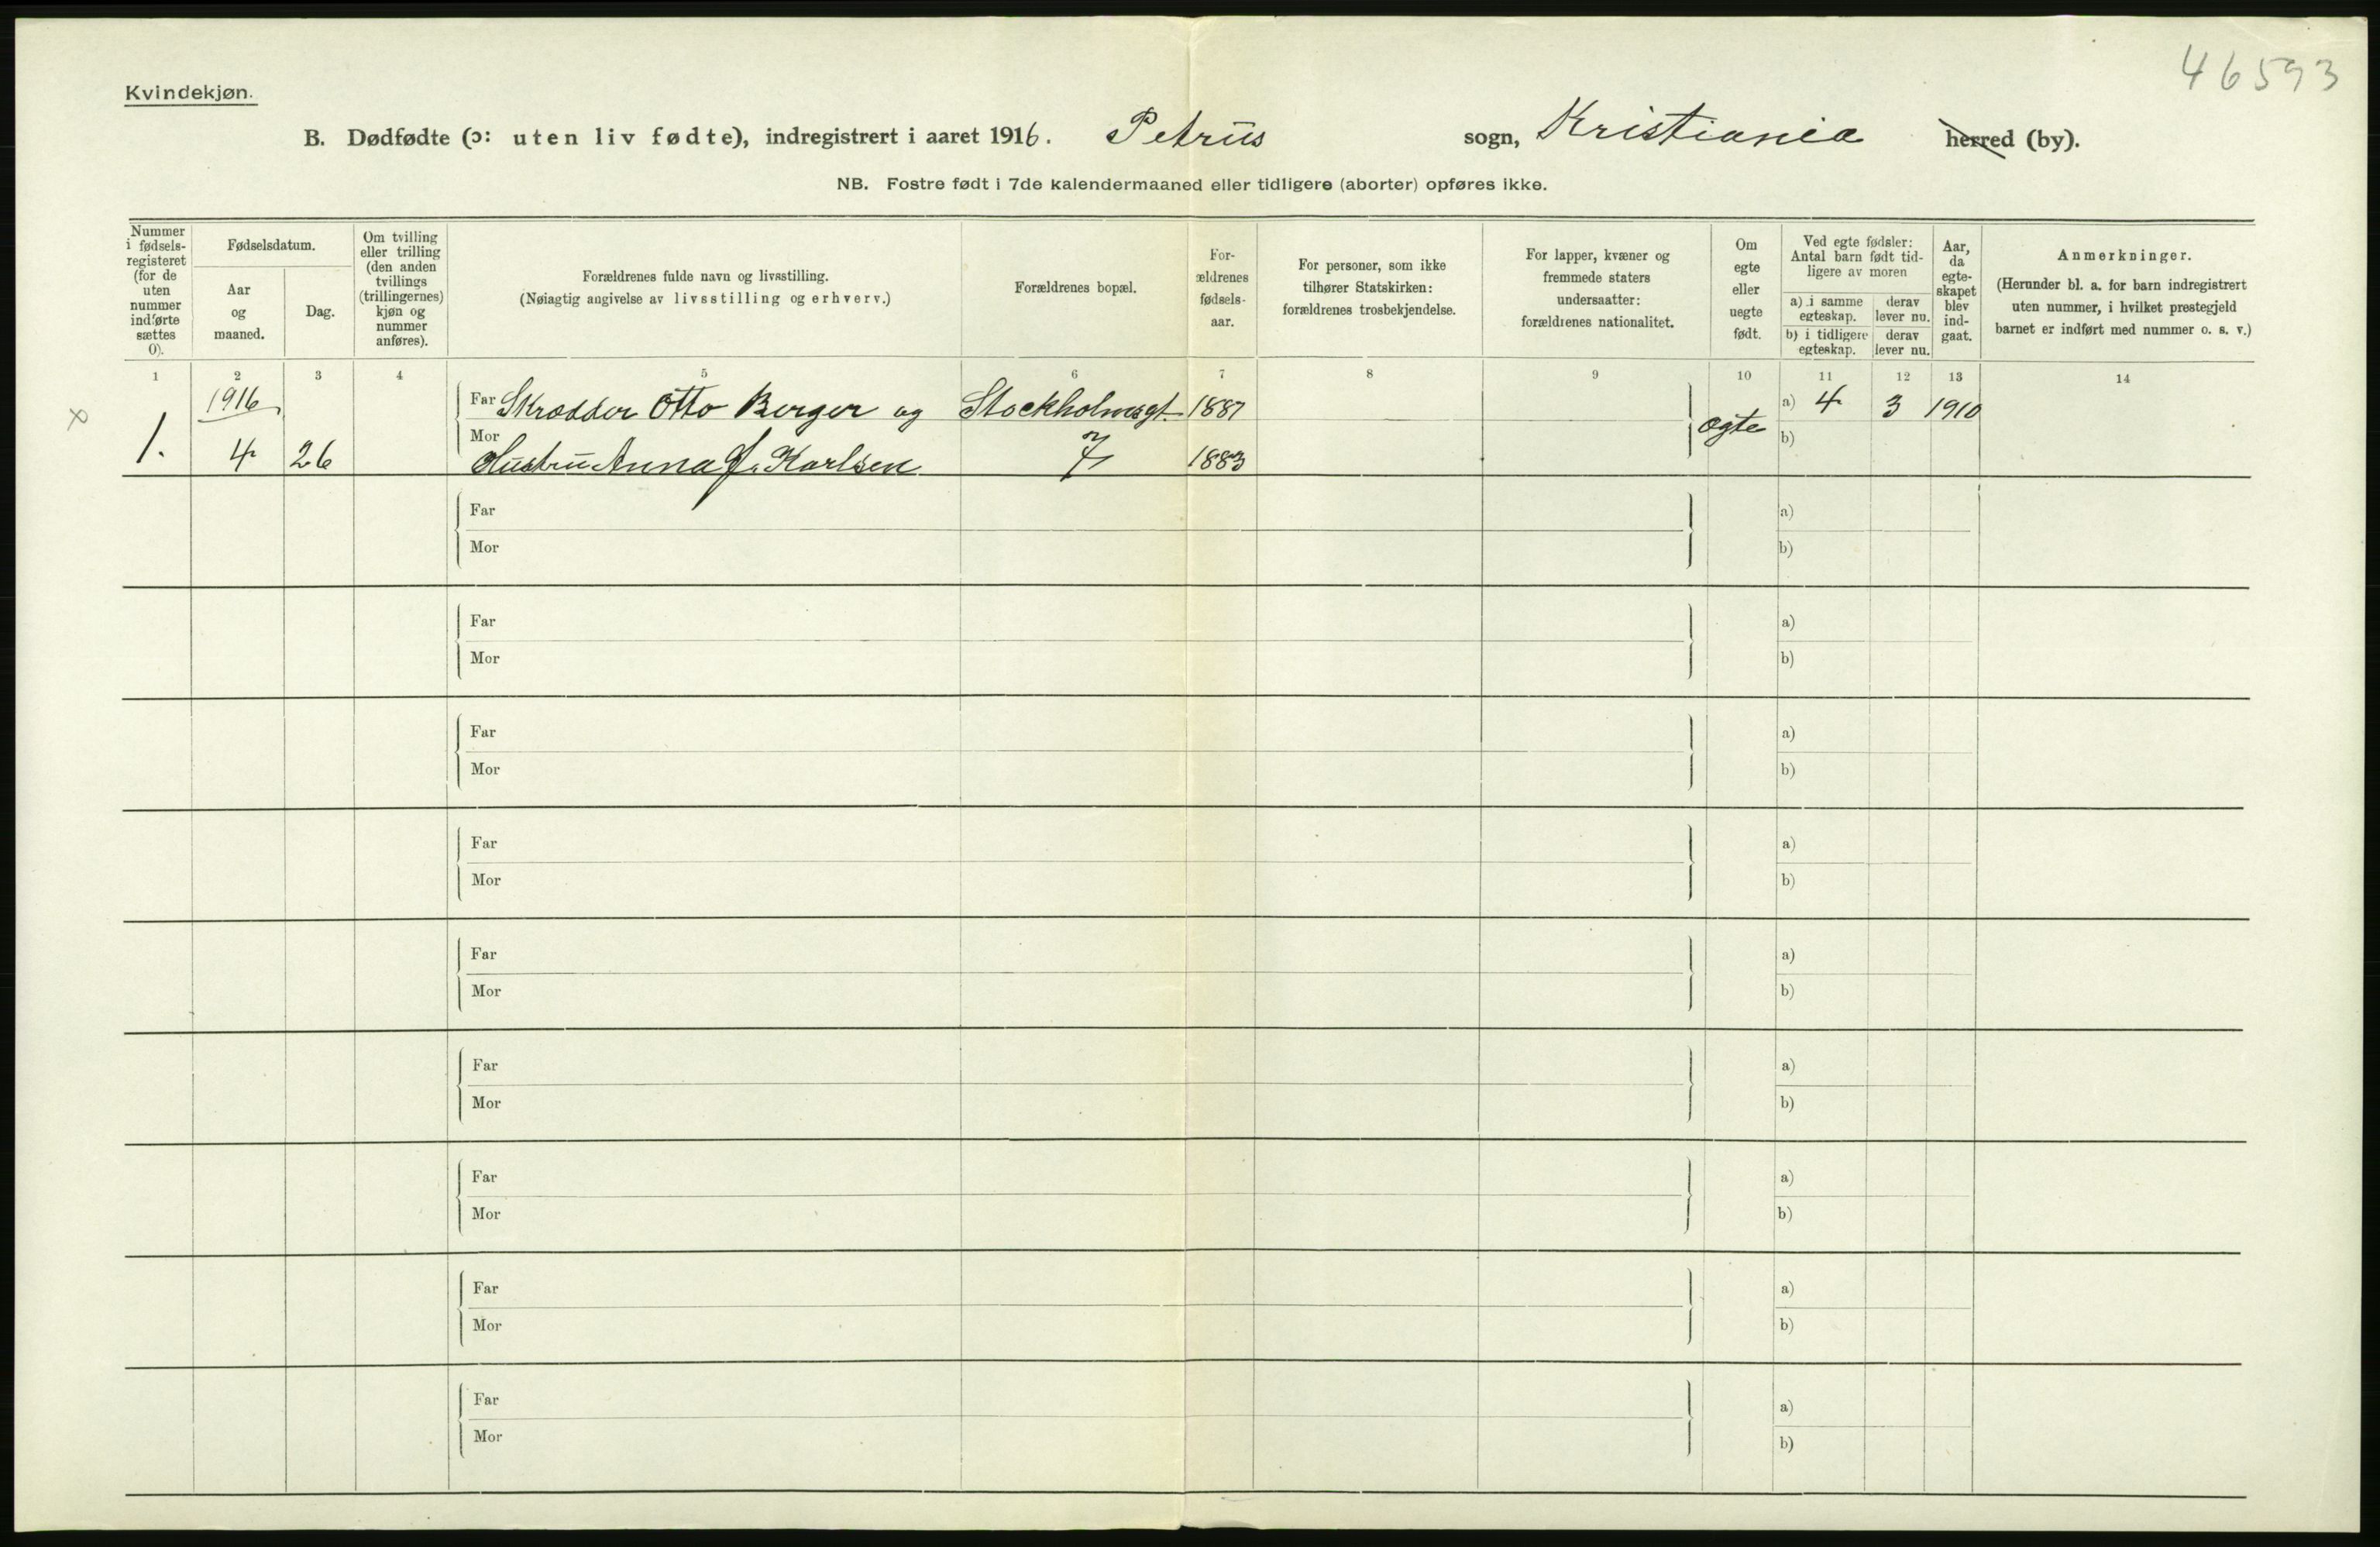 46593
Kvindekjøn.
B. Dødfødte (ɔ: uten liv fødte), indregistrert i aaret 1916. Petrus sogn, Kristiania herred (by).
NB. Fostre født i 7de kalendermaaned eller tidligere (aborter) opføres ikke.
Nummer i fødsels-registeret (for de uten nummer indførte sættes 0).
Fødselsdatum.
Aar og maaned.
Dag.
Om tvilling eller trilling (den anden tvillings (trillingernes) kjøn og nummer anføres).
Forældrenes fulde navn og livsstilling.
(Nøiagtig angivelse av livsstilling og erhverv.)
Forældrenes bopæl.
For-ældrenes fødsels-aar.
For personer, som ikke tilhører Statskirken: forældrenes trosbekjendelse.
For lapper, kvæner og fremmede staters undersaatter: forældrenes nationalitet.
Om egte eller uegte født.
Ved egte fødsler: Antal barn født tid-ligere av moren
a) i samme egteskap.
derav lever nu.
b) i tidligere egteskap.
derav lever nu.
Aar, da egte-skapet blev ind-gaat.
Anmerkninger.
(Herunder bl. a. for barn indregistrert uten nummer, i hvilket prestegjeld barnet er indført med nummer o. s. v.)
1 2 3 4 5 6 7 8 9 10 11 12 13 14
1916
Far Skrædder Otto Berger og Stockholmsgt. 1887 a) 4 3 1910
1. 4 26 Mor Hustru Anna f. Karlsen 7 1883 ægte b)
Far a)
Mor b)
Far a)
Mor b)
Far a)
Mor b)
Far a)
Mor b)
Far a)
Mor b)
Far a)
Mor b)
Far a)
Mor b)
Far a)
Mor b)
Far a)
Mor b)